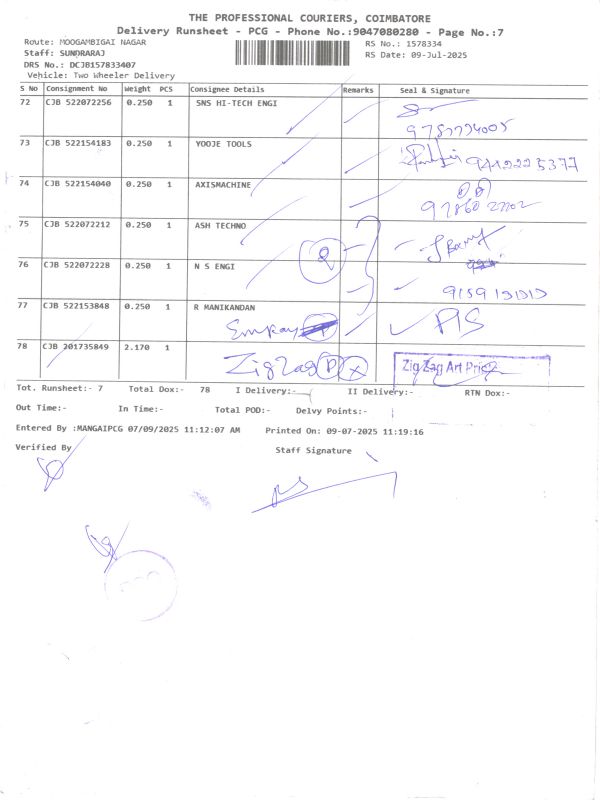 THE PROFESSIONAL COURIERS, COIMBATORE
Delivery Runsheet - PCG - Phone No.:9047080280 - Page No.:7
Route: MOOGAMBIGAI NAGAR
RS No.: 1578334
Staff: SUNDRARAJ
RS Date: 09-Jul-2025
DRS No.: DCJB157833407
Vehicle: Two Wheeler Delivery
S No Consignment No Weight PCS Consignee Details Remarks Seal & Signature
72 CJB 522072256 0.250 1 SNS HI-TECH ENGI
73 CJB 522154183 0.250 1 YOOJE TOOLS
74 CJB 522154040 0.250 1 AXISMACHINE
75 CJB 522072212 0.250 1 ASH TECHNO
76 CJB 522072228 0.250 1 N S ENGI
77 CJB 522153848 0.250 1 R MANIKANDAN
78 CJB 201735849 2.170 1
ZigZag P X Zig Zag Art
Tot. Runsheet:- 7 Total Dox:- 78 I Delivery:- II Delivery:- RTN Dox:-
Out Time:- In Time:- Total POD:- Delvy Points:-
Entered By :MANGAIPCG 07/09/2025 11:12:07 AM Printed On: 09-07-2025 11:19:16
Verified By Staff Signature